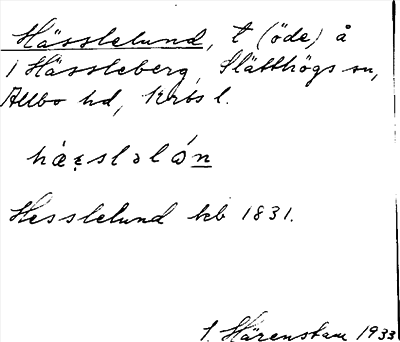 Hässlelund, t (öde) å
1 Hässleberg, Slätthögs sn,
Allbo hd, Krbs l.
Hesslelund kb 1831.
I. Härenstam 1933